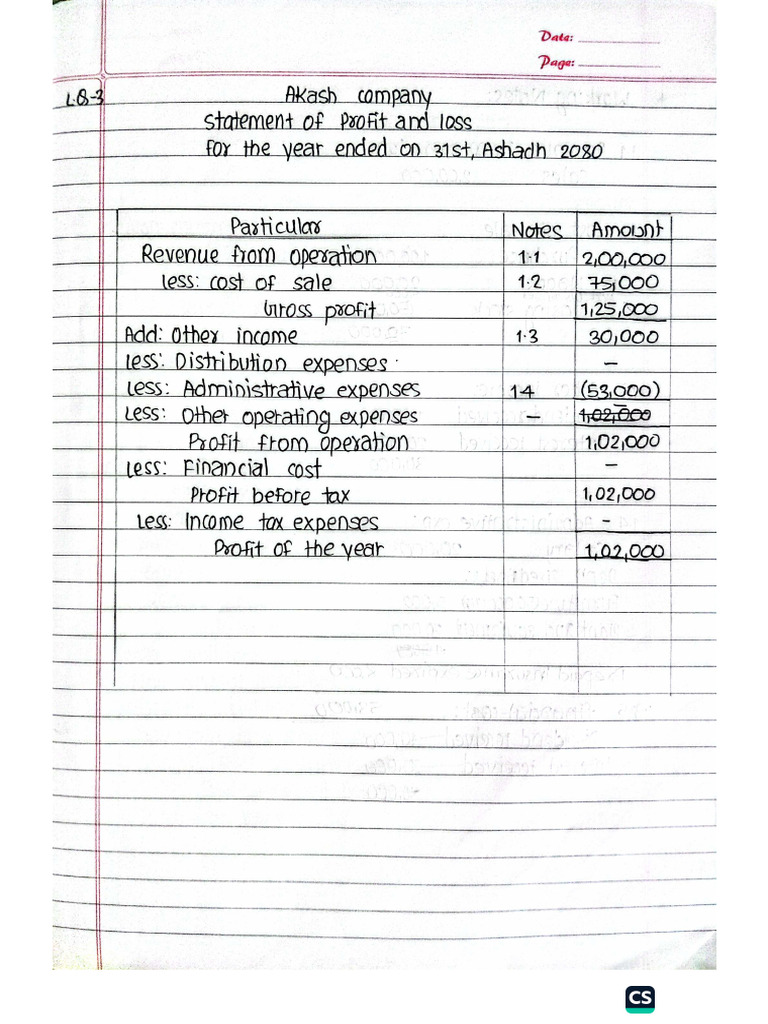 Date:
Page:
L.Q-3 Akash company
Statement of Profit and loss
for the year ended on 31st, Ashadh 2080
Particular Notes Amount
Revenue from operation 1.1 2,00,000
less: cost of sale 1.2 75,000
Gross profit 1,25,000
Add: Other income 1.3 30,000
less: Distribution expenses. –
Less: Administrative expenses 1.4 (53,000)
Less: Other operating expenses 1,02,000 –
Profit from operation 1,02,000
Less: Financial cost –
Profit before tax 1,02,000
Less: Income tax expenses –
Profit of the year 1,02,000
CS